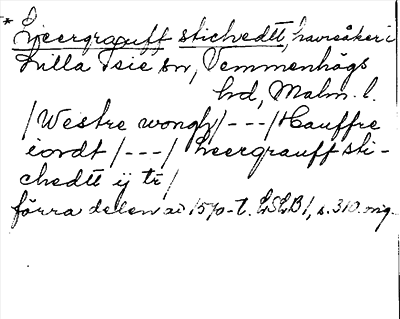 * Leergrauff stichedtt, havreåker i
Lilla Isie sn, Vemmenhögs
hd, Malm. l.
/Westre wongh/---/Hauffre
iordt/---/ Leergrauff sti-
chedtt ij tr/
förra delen av 1570-t. LSLB 1, s. 310. orig.